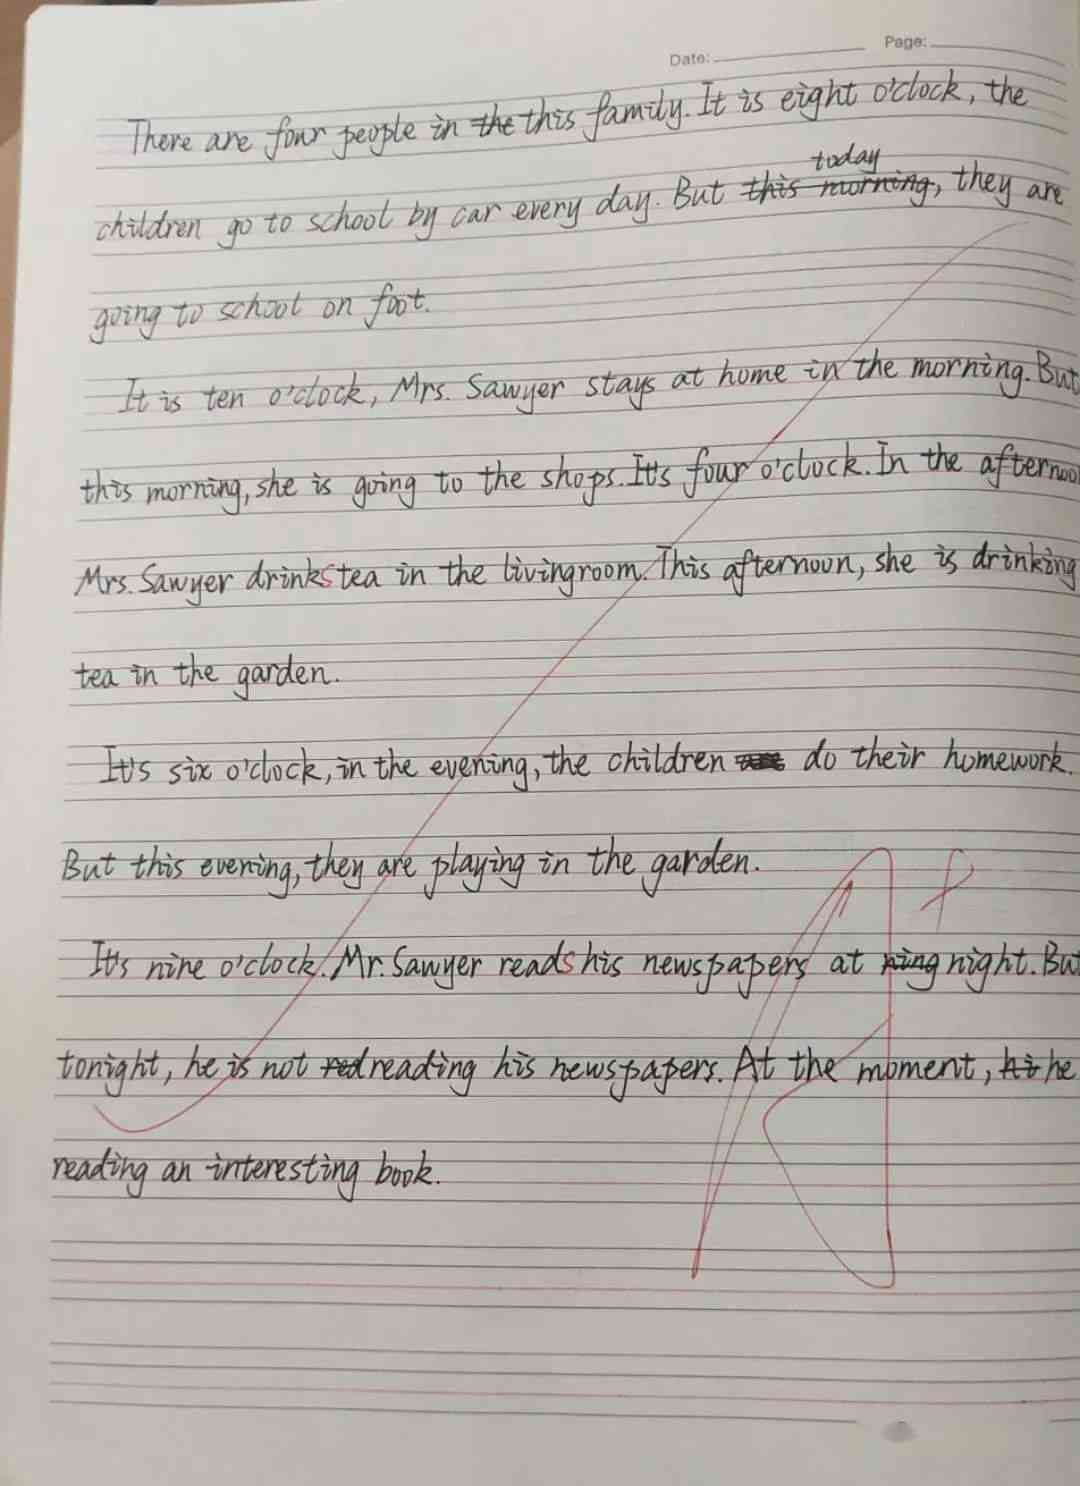 Date: Page:
There are four people in the this family. It is eight o'clock, the
today
children go to school by car every day. But this morning, they are
going to school on foot.
It is ten o'clock, Mrs. Sawyer stays at home in the morning. But
this morning, she is going to the shops. It's four o'clock. In the afternoo
Mrs. Sawyer drinks tea in the livingroom. This afternoon, she is drinking
tea in the garden.
It's six o'clock, in the evening, the children do their homework.
But this evening, they are playing in the garden.
It's nine o'clock. Mr. Sawyer reads his newspapers at ning night. But
tonight, he is not red reading his newspapers. At the moment, hi he
reading an interesting book.
A+